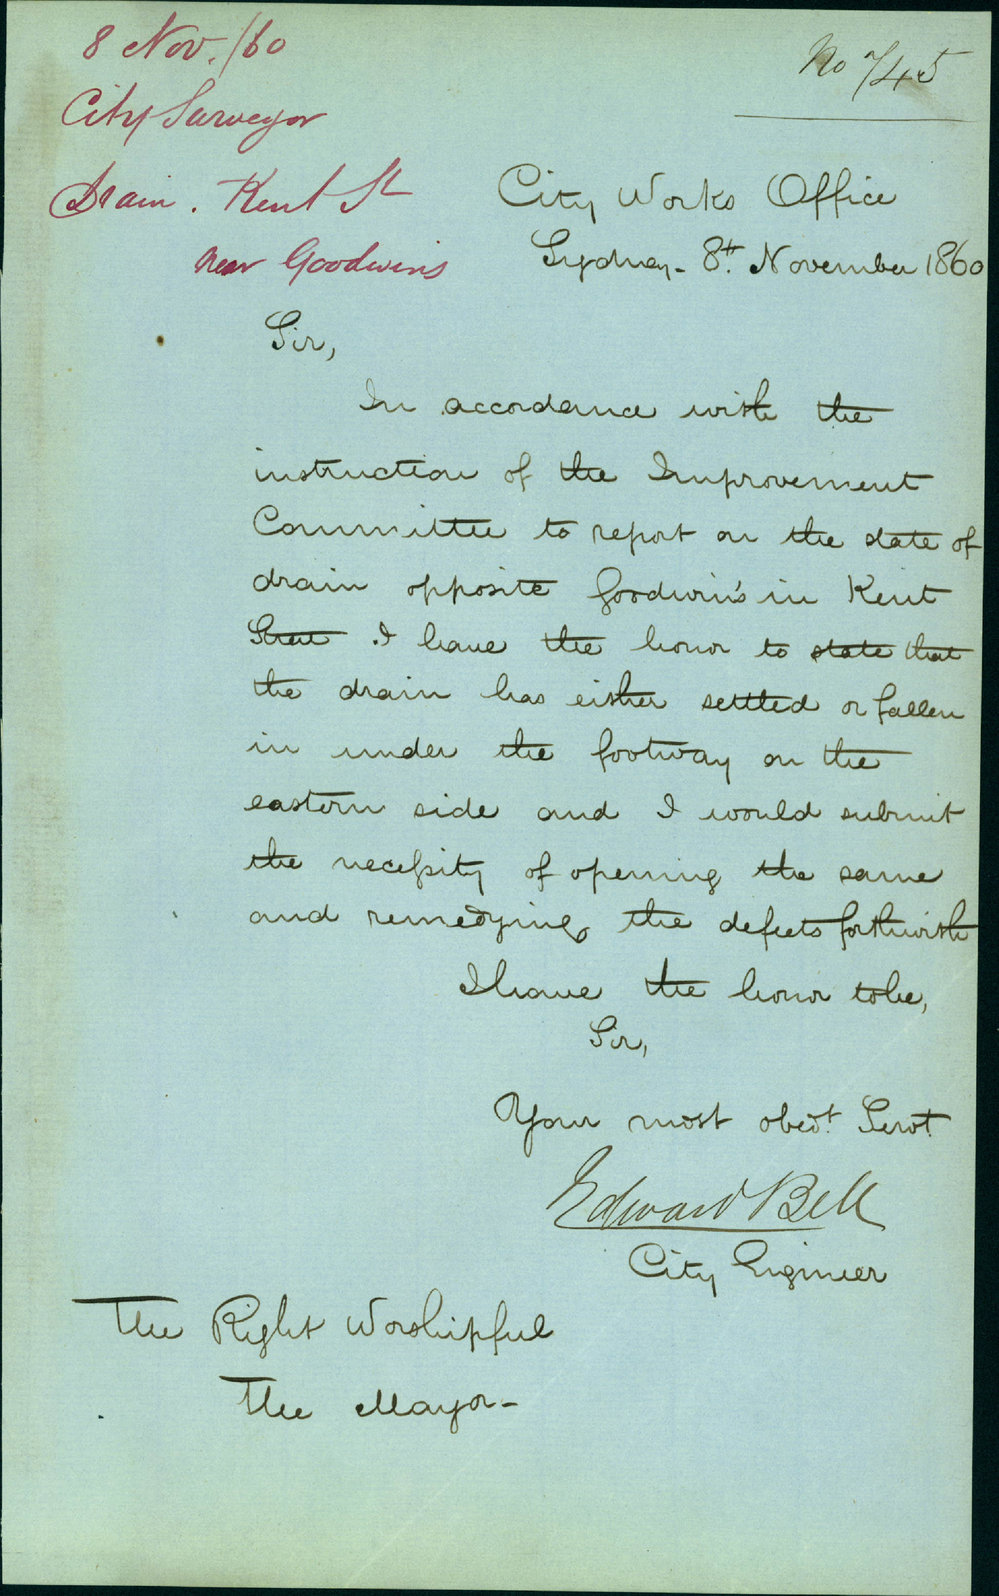 8 Nov. /60
City Surveyor
Drain. Kent St
near Goodwins
No 745
City Works Office
Sydney - 8th. November 1860
Sir,
In accordance with the
instruction of the Improvement
Committee to report on the state of
drain opposite Goodwin's in Kent
Street I have the honor to state that
the drain has either settled or fallen
in under the footway on the
eastern side and I would submit
the necessity of opening the same
and remedying the defects forthwith
I have the honor to be,
Sir,
Your most obedt. Servt.
Edward Bell
City Engineer
The Right Worshipful
The Mayor -